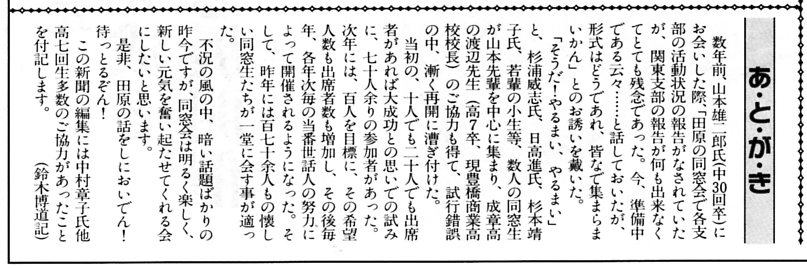 あ・と・が・き
数年前、山本雄二郎氏(中30回卒)に
お会いした際、「田原の同窓会で各支
部の活動状況の報告がなされていた
が、関東支部の報告が何も出来なく
てとても残念であった。今、準備中
である云々……と話しておいたが、
形式はどうであれ、皆なで集まらま
いかん」とのお誘いを戴いた。
「そうだ!やるまい、やるまい」
と、杉浦威志氏、日高進氏、杉本靖
子氏、若輩の小生等、数人の同窓生
が山本先輩を中心に集まり、成章高
の渡辺先生(高7卒、現豊橋商業高
校校長)のご協力も得て、試行錯誤
の中、漸く再開に漕ぎ付けた。
当初の、十人でも二十人でも出席
者があれば大成功との思いでの試み
に、七十人余りの参加者があった。
次年には、百人を目標に、その希望
人数も出席者数も増加し、その後毎
年、各年次毎の当番世話人の努力に
よって開催されるようになった。そ
して、昨年には百七十余人もの懐し
い同窓生たちが一堂に会す事が適っ
た。
不況の風の中、暗い話題ばかりの
昨今ですが、同窓会は明るく楽しく、
新しい元気を奮い起たせてくれる会
にしたいと思います。
是非、田原の話をしにおいでん!
待っとるぞん!
この新聞の編集には中村章子氏他
高七回生多数のご協力があったこと
を付記します。
(鈴木博道記)